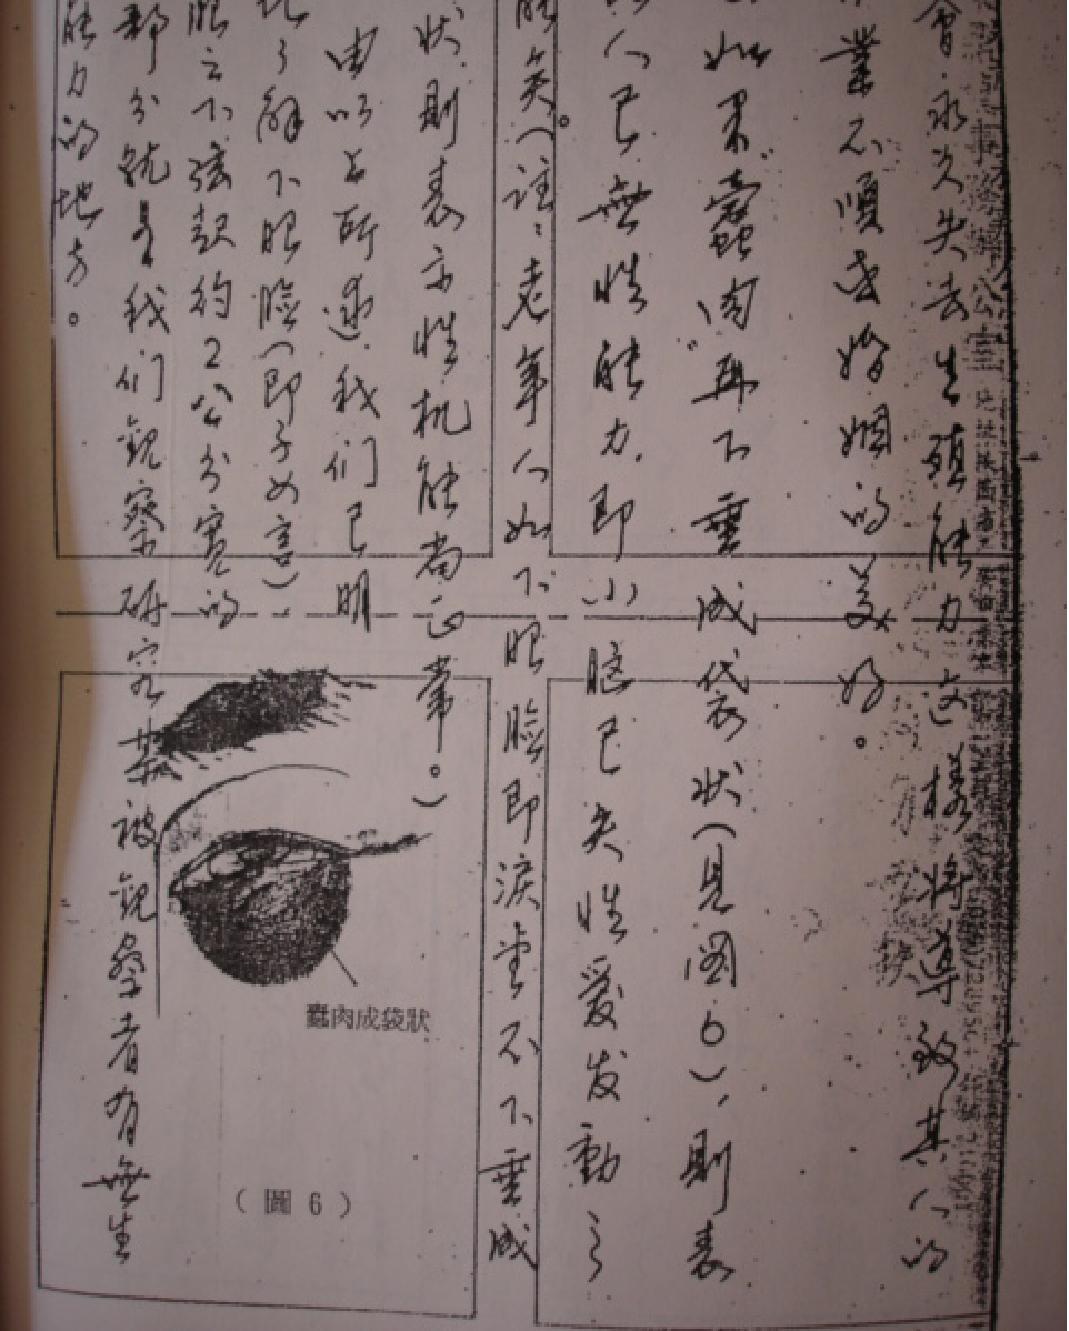 會永久失去生殖能力这樣將導致其人的
業不順或婚姻的美好。
如果"蠶肉"再下垂成袋狀（見图6），則表
人已無性能力，即小脑已失性爱发動之
能矣。（註：老年人如下眼臉即淚堂不下垂成
狀，則表示性机能尚正常。）
由以上所述，我们已明
了解下眼臉（即子女宮）
眼之下弦起約2公分寬的
部分就是我们観察研究某被観察者有無生
能力的地方。
蠶肉成袋狀
（圖6）